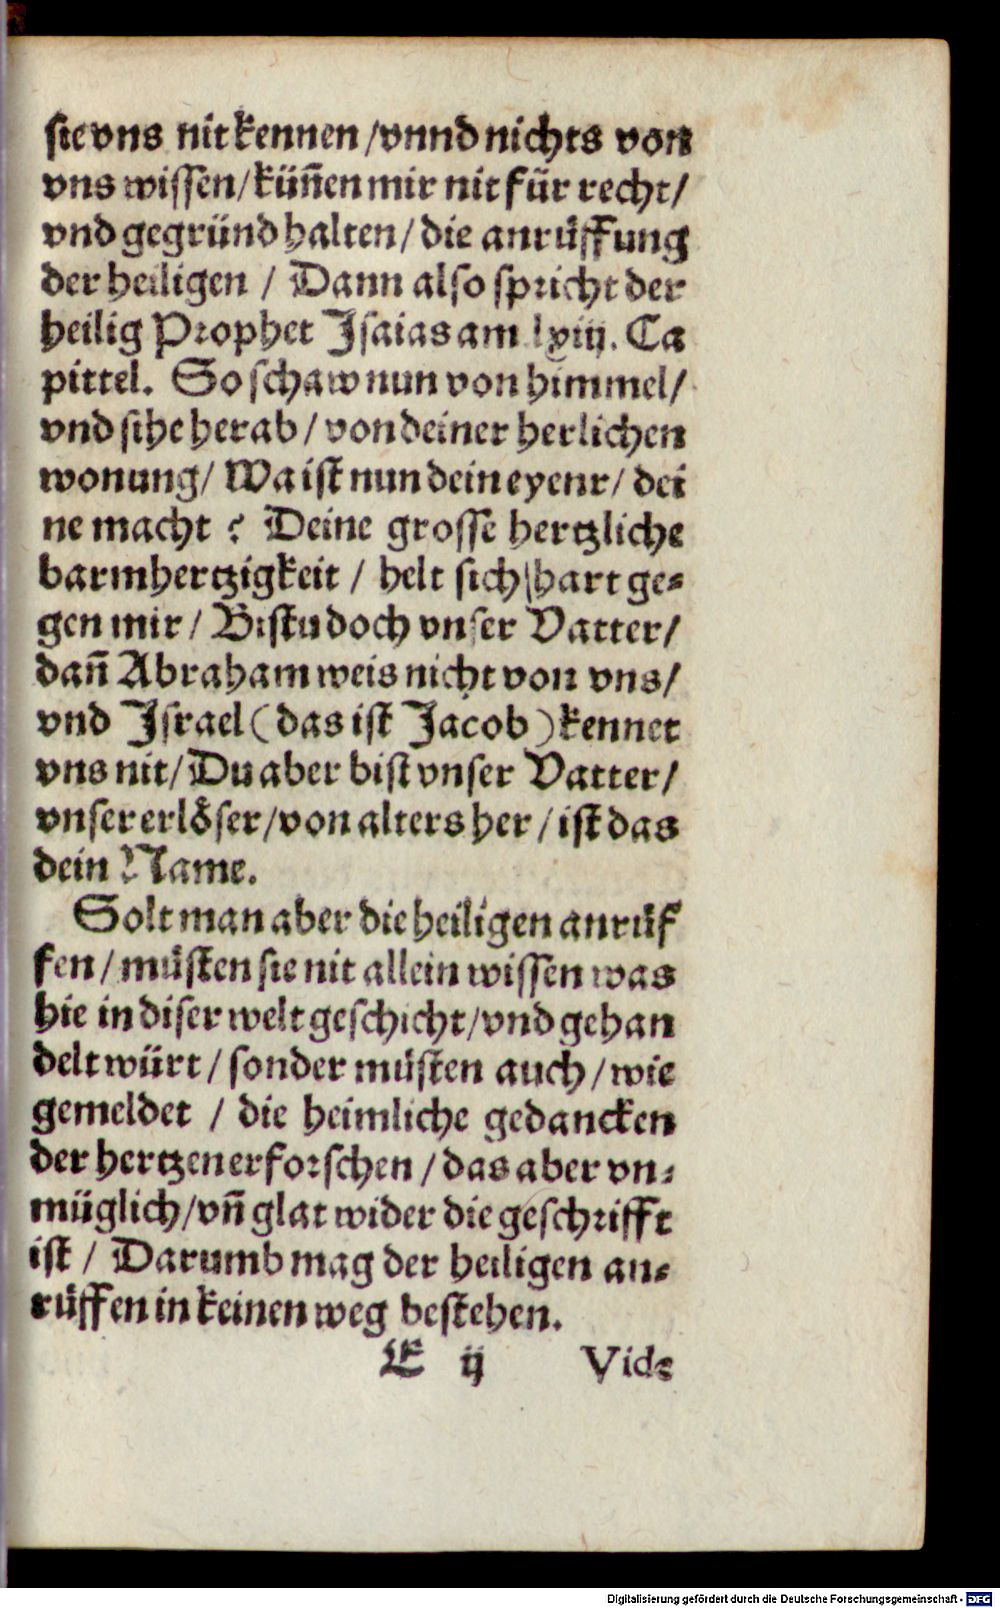 sie vns nit kennen / vnnd nichts von
vns wissen / küñen mir nit für recht /
vnd gegründ halten / die anrüffung
der heiligen / Dann also spricht der
heilig Prophet Isaias am lxiij. Ca
pittel. So schaw nun von himmel /
vnd sihe herab / von deiner herlichen
wonung / Wa ist nun dein eyenr / dei
ne macht ? Deine grosse hertzliche
barmhertzigkeit / helt sich hart ge-
gen mir / Bistu doch vnser Vatter /
dañ Abraham weis nicht von vns /
vnd Israel ( das ist Jacob ) kennet
vns nit / Du aber bist vnser Vatter /
vnser erlöser / von alters her / ist das
dein Name.
Solt man aber die heiligen anrüf
fen / müsten sie nit allein wissen was
hie in diser welt geschicht / vnd gehan
delt würt / sonder müsten auch / wie
gemeldet / die heimliche gedancken
der hertzen erforschen / das aber vn-
müglich / vñ glat wider die geschrifft
ist / Darumb mag der heiligen an-
rüffen in keinen weg bestehen.
E ij Vide
Digitalisierung gefördert durch die Deutsche Forschungsgemeinschaft - DFG